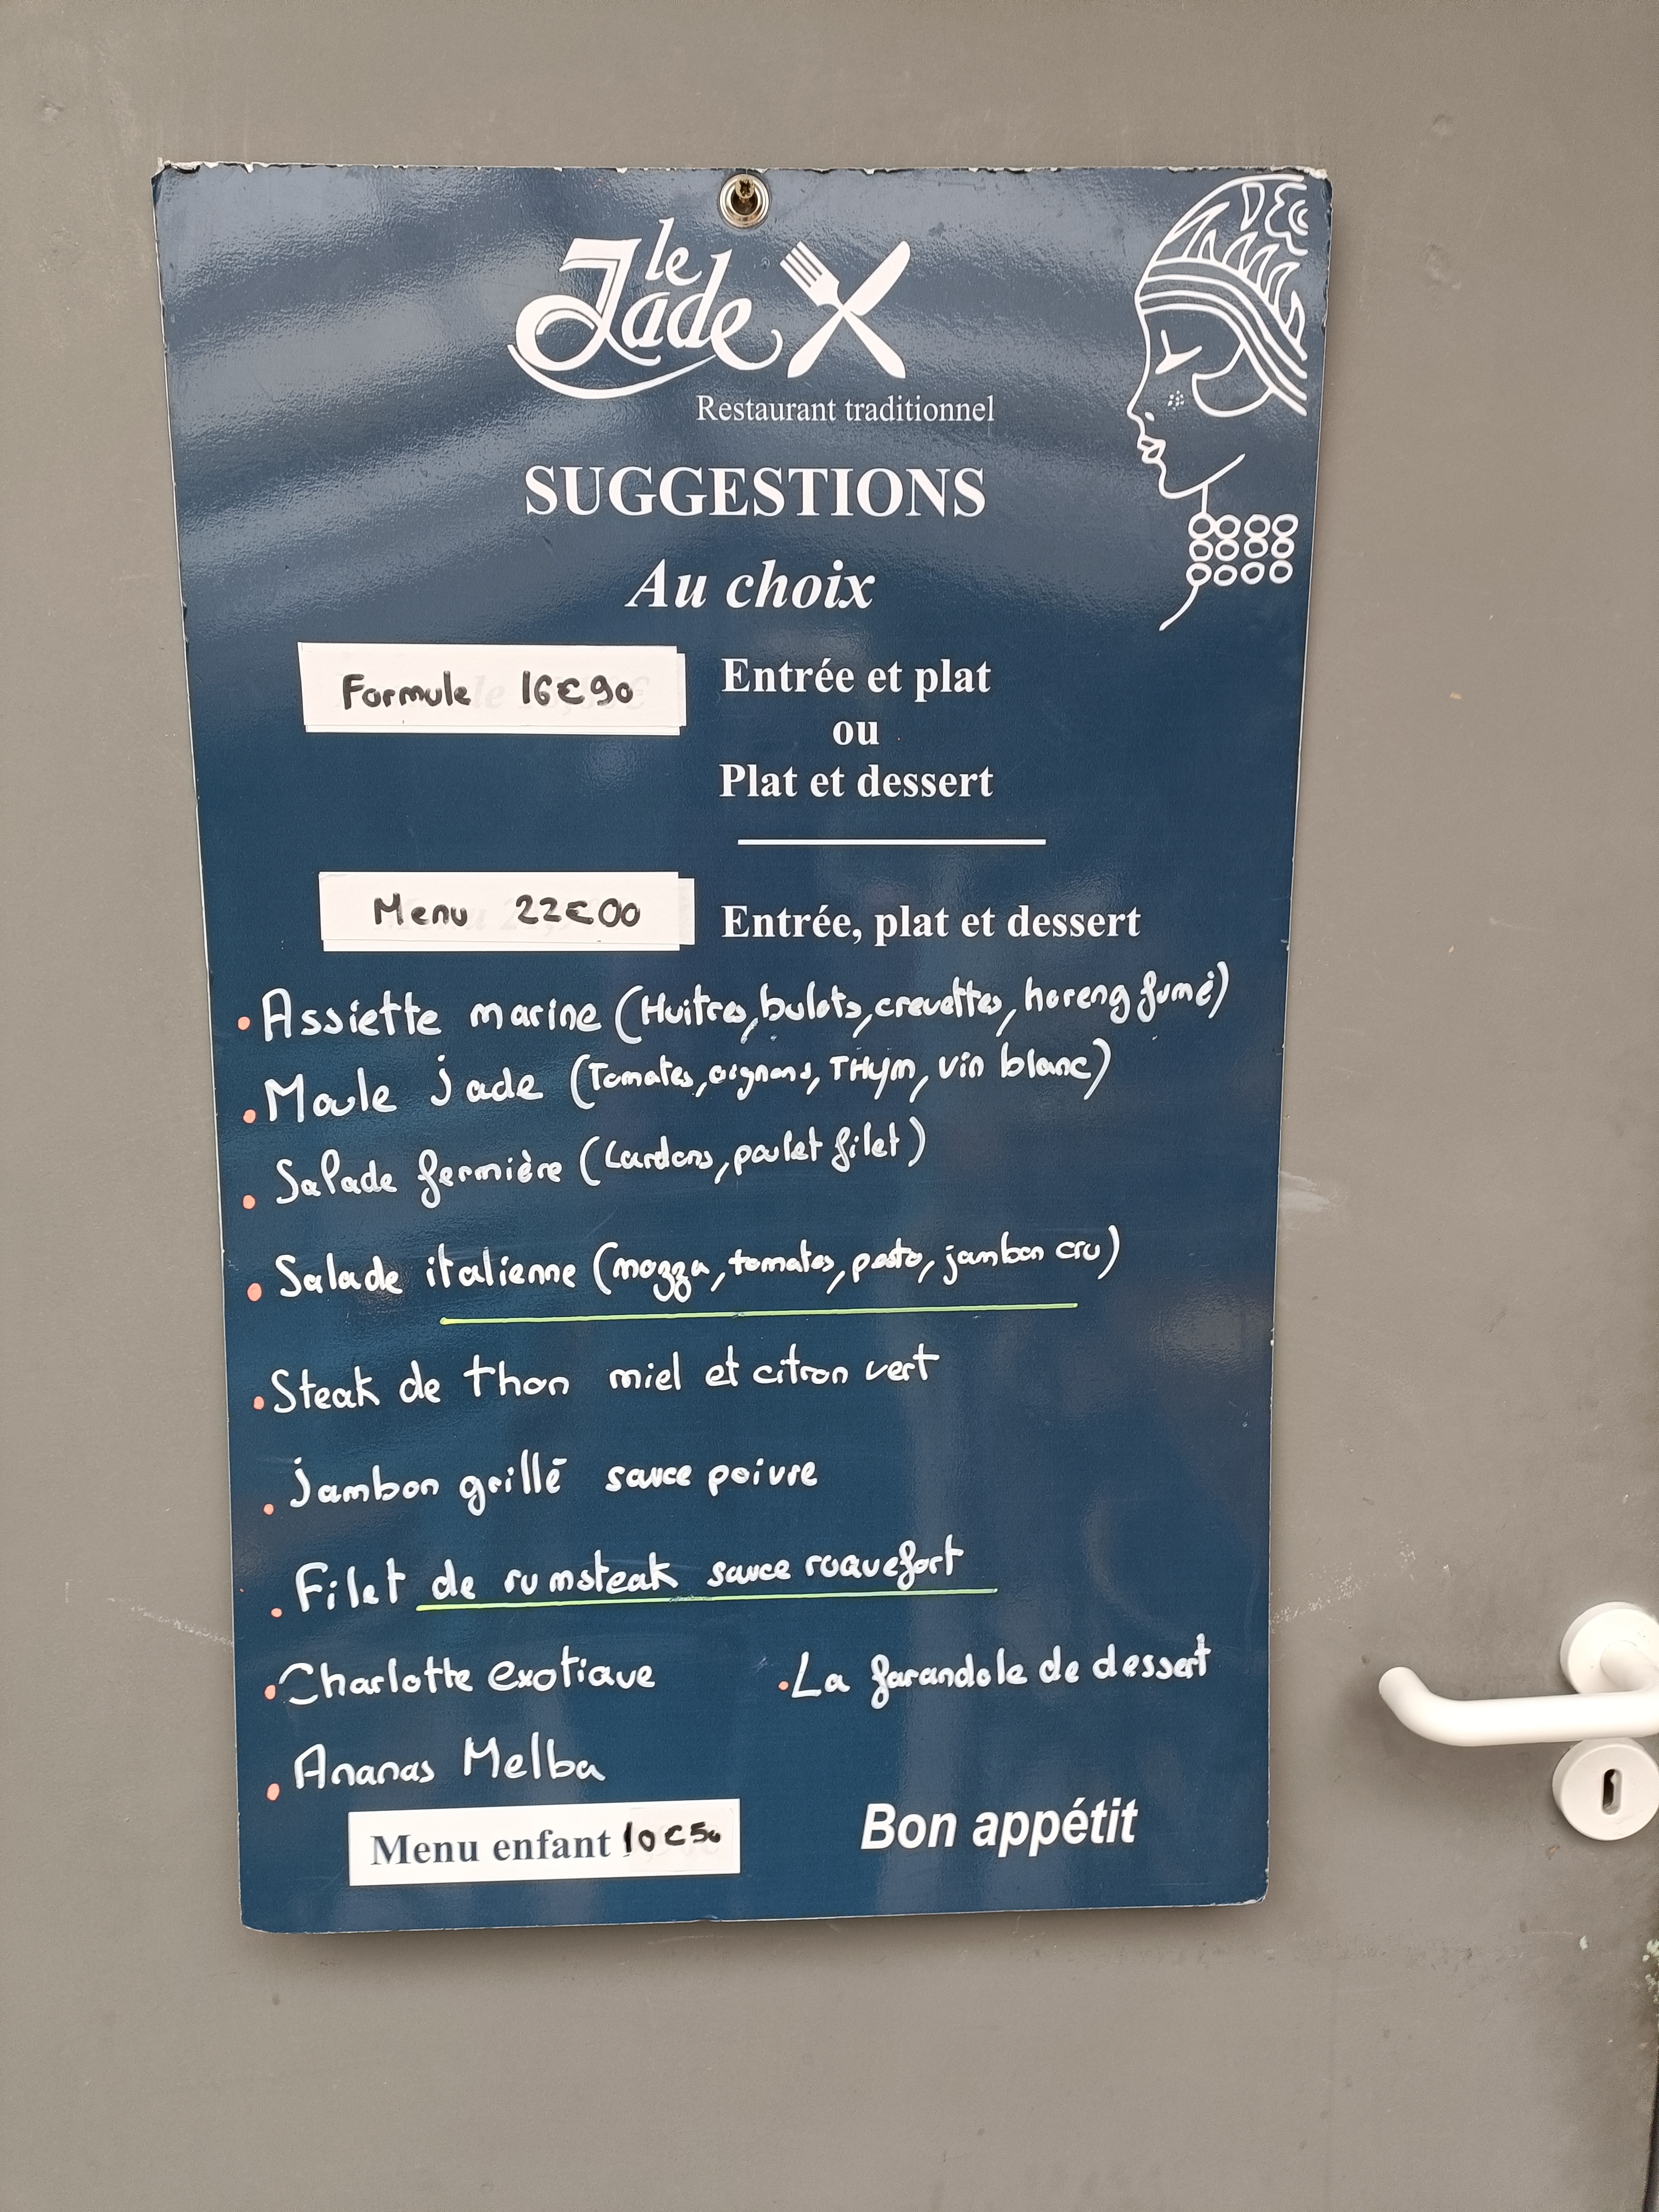 le
Jade
Restaurant traditionnel
SUGGESTIONS
Au choix
Formule 16€90
Entrée et plat
ou
Plat et dessert
Menu 22€00
Entrée, plat et dessert
• Assiette marine (Huitres, bulots, crevettes, hareng fumé)
• Moule jade (Tomates, oignons, THym, vin blanc)
• Salade fermière (Lardons, poulet filet)
• Salade italienne (mozza, tomates, pesto, jambon cru)
• Steak de thon miel et citron vert
• jambon grillé sauce poivre
• Filet de rumsteak sauce roquefort
• Charlotte exotique
• La farandole de dessert
• Ananas Melba
Menu enfant 10€50
Bon appétit